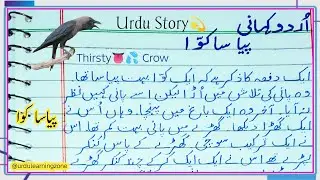 Urdu Story
اُردو کہانی
پیاسا کوّا
Thirsty Crow
ایک دفعہ کا ذکر ہے کہ ایک کوّا بہت پیاسا تھا۔
وہ پانی کی تلاش میں اُڑا لیکن اسے پانی کہیں نظر
نہ آیا۔ آخر وہ ایک باغ میں پہنچا۔ وہاں اُس نے
ایک گھڑا دیکھا۔ گھڑے میں پانی بہت کم تھا۔ اس
نے ایک ترکیب سوچی گھڑے کے پاس کنکر
پڑے تھے اس نے ایک ایک کر کے چند کنکر گھڑے
پیاسا کوّا
@urdulearningzone